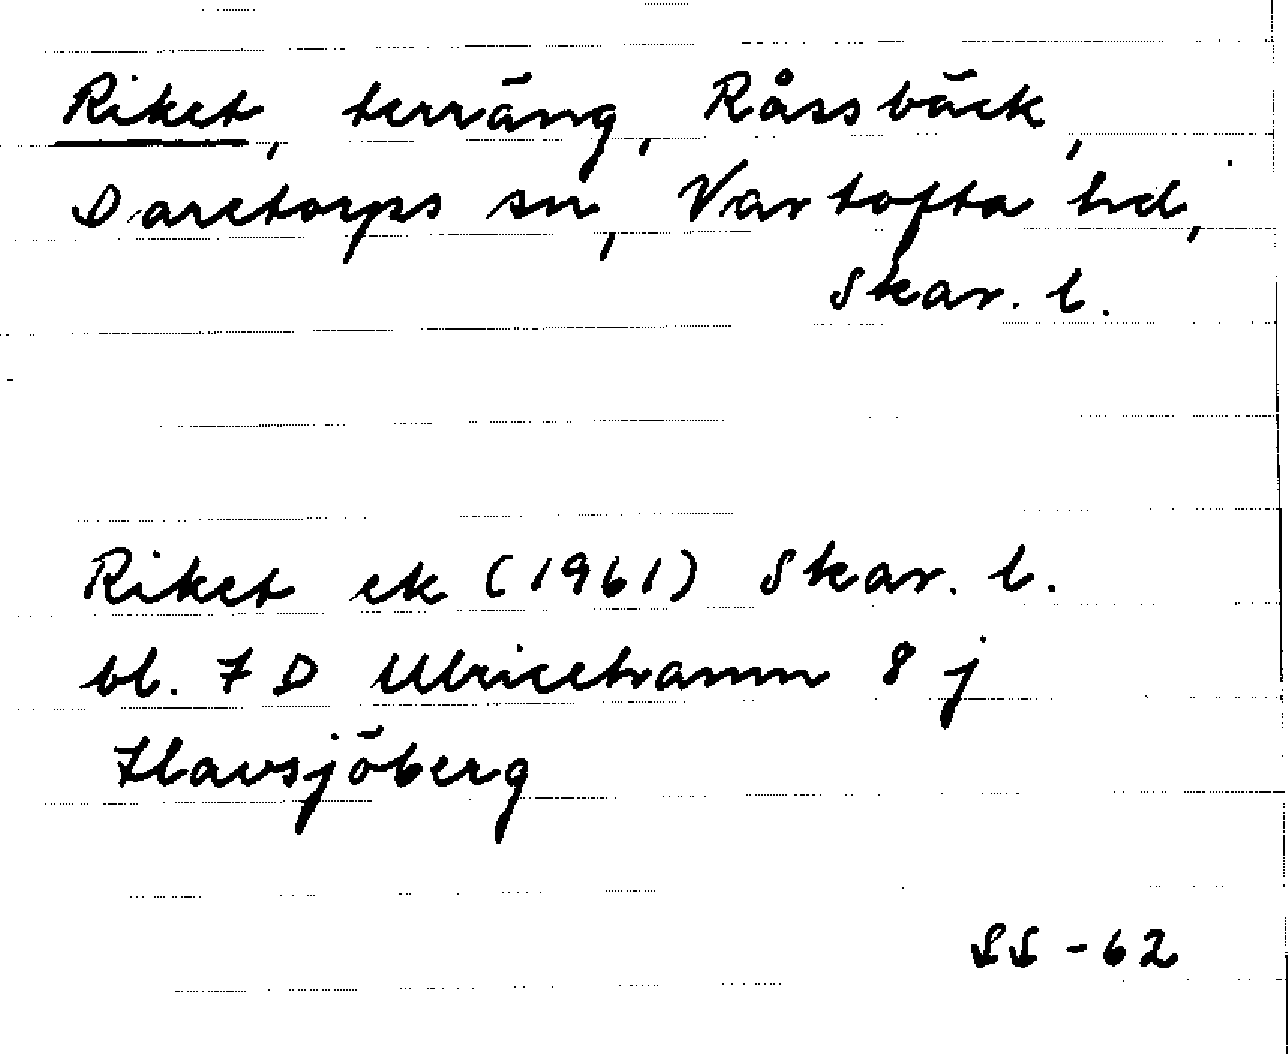 Riket, terräng, Råssbäck,
Daretorps sn, Vartofta hd,
Skar. l.
Riket ek (1961) Skar. l.
bl. 7 D Ulricehamn 8 j
Havsjöberg
SS - 62